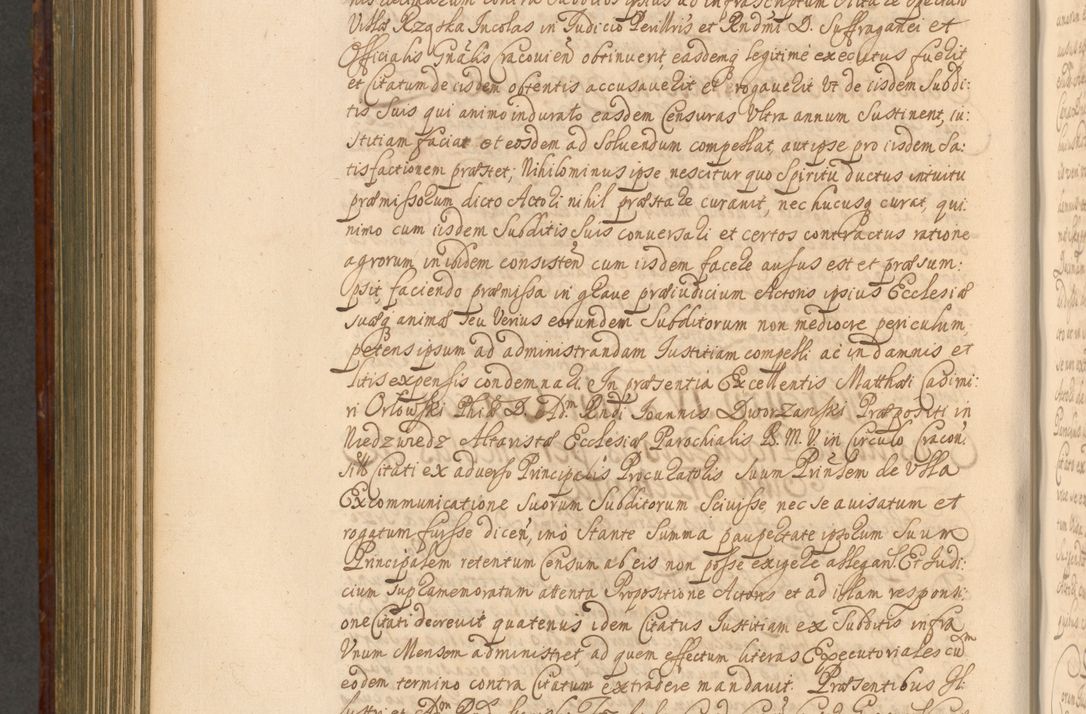 Villæ Rząska Incolas in Judicio Perillris et Rndmi D. Suffraganei et
Officialis Gnalis Cracovien̄ obtinuerit, easdemq legitimè executus fuerit
et Citatum de iisdem obtentis accusaverit et rogaverit Vt de iisdem Subdi:
tis Suis qui animo indurato easdem Censuras Vltra annum Sustinent, iu:
stitiam faciat et eosdem ad Soluendum compellat, aut ipse pro iisdem Sa:
tisfactionem præstet; Nihilominus ipse nescitur quo Spiritu ductus intuitu
præmissorum dicto Actori nihil præstare curavit, nec hucusq curat, qui:
nimo cum iisdem Subditis Suis conversari et certos contractus ratione
agrorum inibidem consisten̄ cum iisdem facere ausus est et præsum:
psit, faciendo præmissa in grave præiudicium Actoris ipsius Ecclesiæ
suæq animæ seu Verius eorundem Subditorum non mediocre periculum,
petens ipsum ad administrandam Justitiam compelli ac in damnis et
litis expensis condemnari. In præsentia Excellentis Matthæi Casimi:
ri Orłowski Phiæ D. Adm Rndi Joannis Dworzanski Præpositi in
Niedzwiedz Altaristæ Ecclesiæ Parochialis B. M. V. in Circulo Cracon̄
Citati ex adverso Principalis Procuratoris Suum Prinlem de Vlla
Excommunicatione Suorum Subditorum Scivisse, nec se avisatum et
rogatum fuisse dicen̄, imò Stante Summa paupertate ipsorum Suum
Principalem retentum Censum ab eis non posse exigere allegan̄. Et Judi:
cium Supramemoratum attenta Propositione Actoris et ad illam responsi:
one Citati decrevit quatenus idem Citatus Justitiam ex Subditis infra
Vnum Mensem administret, ad quem effectum literas Executoriales cum
eodem termino contra Citatum extradere mandavit. Præsentibus Jl: